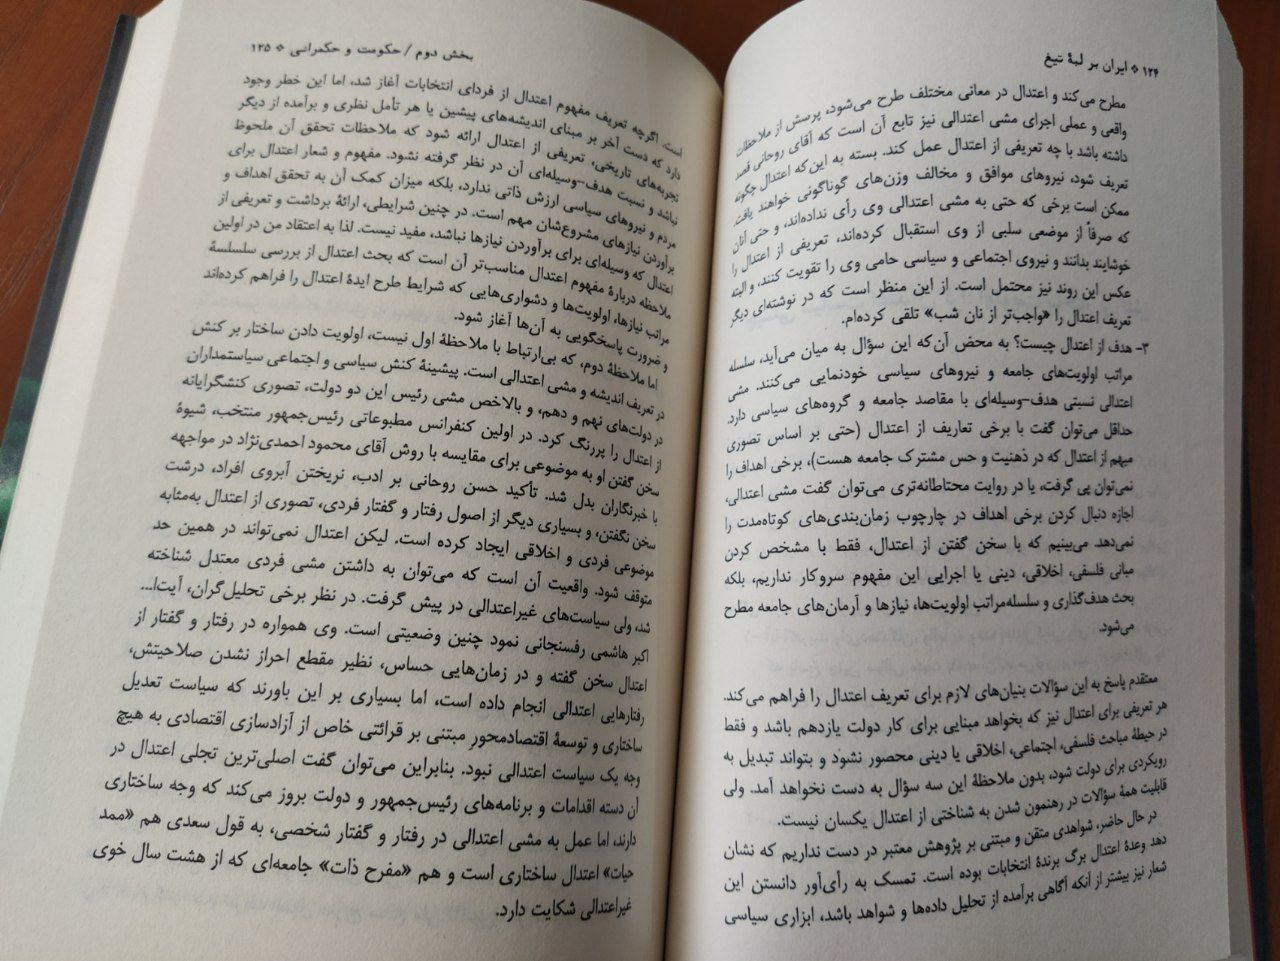 ۱۲۴ ❖ ایران بر لبهٔ تیغ
مطرح می‌کند و اعتدال در معانی مختلف طرح می‌شود، پرسش از ملاحظات
واقعی و عملی اجرای مشی اعتدالی نیز تابع آن است که آقای روحانی قصد
داشته باشد با چه تعریفی از اعتدال عمل کند. بسته به این‌که اعتدال چگونه
تعریف شود، نیروهای موافق و مخالف وزن‌های گوناگونی خواهند یافت.
ممکن است برخی که حتی به مشی اعتدالی وی رأی نداده‌اند، و حتی آنان
که صرفاً از موضعی سلبی از وی استقبال کرده‌اند، تعریفی از اعتدال را
خوشایند بدانند و نیروی اجتماعی و سیاسی حامی وی را تقویت کنند، و البته
عکس این روند نیز محتمل است. از این منظر است که در نوشته‌ای دیگر
تعریف اعتدال را «واجب‌تر از نان شب» تلقی کرده‌ام.
۳- هدف از اعتدال چیست؟ به محض آن‌که این سؤال به میان می‌آید، سلسله
مراتب اولویت‌های جامعه و نیروهای سیاسی خودنمایی می‌کنند. مشی
اعتدالی نسبتی هدف–وسیله‌ای با مقاصد جامعه و گروه‌های سیاسی دارد.
حداقل می‌توان گفت با برخی تعاریف از اعتدال (حتی بر اساس تصوری
مبهم از اعتدال که در ذهنیت و حس مشترک جامعه هست)، برخی اهداف را
نمی‌توان پی گرفت، یا در روایت محتاطانه‌تری می‌توان گفت مشی اعتدالی،
اجازه دنبال کردن برخی اهداف در چارچوب زمان‌بندی‌های کوتاه‌مدت را
نمی‌دهد. می‌بینیم که با سخن گفتن از اعتدال، فقط با مشخص کردن
مبانی فلسفی، اخلاقی، دینی یا اجرایی این مفهوم سروکار نداریم، بلکه
بحث هدف‌گذاری و سلسله‌مراتب اولویت‌ها، نیازها و آرمان‌های جامعه مطرح
می‌شود.
معتقدم پاسخ به این سؤالات بنیان‌های لازم برای تعریف اعتدال را فراهم می‌کند.
هر تعریفی برای اعتدال نیز که بخواهد مبنایی برای کار دولت یازدهم باشد و فقط
در حیطهٔ مباحث فلسفی، اجتماعی، اخلاقی یا دینی محصور نشود و بتواند تبدیل به
رویکردی برای دولت شود، بدون ملاحظهٔ این سه سؤال به دست نخواهد آمد. ولی
قابلیت همهٔ سؤالات در رهنمون شدن به شناختی از اعتدال یکسان نیست.
در حال حاضر، شواهدی متقن و مبتنی بر پژوهش معتبر در دست نداریم که نشان
دهد وعدهٔ اعتدال برگ برندهٔ انتخابات بوده است. تمسک به رأی‌آور دانستن این
شعار نیز بیشتر از آنکه آگاهی برآمده از تحلیل داده‌ها و شواهد باشد، ابزاری سیاسی
بخش دوم / حکومت و حکمرانی ❖ ۱۲۵
است. اگرچه تعریف مفهوم اعتدال از فردای انتخابات آغاز شد، اما این خطر وجود
دارد که دست آخر بر مبنای اندیشه‌های پیشین یا هر تأمل نظری و برآمده از دیگر
تجربه‌های تاریخی، تعریفی از اعتدال ارائه شود که ملاحظات تحقق آن ملحوظ
نباشد و نسبت هدف–وسیله‌ای آن در نظر گرفته نشود. مفهوم و شعار اعتدال برای
مردم و نیروهای سیاسی ارزش ذاتی ندارد، بلکه میزان کمک آن به تحقق اهداف و
برآوردن نیازهای مشروع‌شان مهم است. در چنین شرایطی، ارائهٔ برداشت و تعریفی از
اعتدال که وسیله‌ای برای برآوردن نیازها نباشد، مفید نیست. لذا به اعتقاد من در اولین
ملاحظه دربارهٔ مفهوم اعتدال مناسب‌تر آن است که بحث اعتدال از بررسی سلسلهٔ
مراتب نیازها، اولویت‌ها و دشواری‌هایی که شرایط طرح ایدهٔ اعتدال را فراهم کرده‌اند
و ضرورت پاسخگویی به آن‌ها آغاز شود.
اما ملاحظهٔ دوم، که بی‌ارتباط با ملاحظهٔ اول نیست، اولویت دادن ساختار بر کنش
در تعریف اندیشه و مشی اعتدالی است. پیشینهٔ کنش سیاسی و اجتماعی سیاستمداران
در دولت‌های نهم و دهم، و بالاخص مشی رئیس این دو دولت، تصوری کنشگرایانه
از اعتدال را پررنگ کرد. در اولین کنفرانس مطبوعاتی رئیس‌جمهور منتخب، شیوهٔ
سخن گفتن او به موضوعی برای مقایسه با روش آقای محمود احمدی‌نژاد در مواجهه
با خبرنگاران بدل شد. تأکید حسن روحانی بر ادب، نریختن آبروی افراد، درشت
سخن نگفتن، و بسیاری دیگر از اصول رفتار و گفتار فردی، تصوری از اعتدال به‌مثابه
موضوعی فردی و اخلاقی ایجاد کرده است. لیکن اعتدال نمی‌تواند در همین حد
متوقف شود. واقعیت آن است که می‌توان به داشتن مشی فردی معتدل شناخته
شد، ولی سیاست‌های غیراعتدالی در پیش گرفت. در نظر برخی تحلیل‌گران، آیت‌ا...
اکبر هاشمی رفسنجانی نمود چنین وضعیتی است. وی همواره در رفتار و گفتار از
اعتدال سخن گفته و در زمان‌هایی حساس، نظیر مقطع احراز نشدن صلاحیتش،
رفتارهایی اعتدالی انجام داده است، اما بسیاری بر این باورند که سیاست تعدیل
ساختاری و توسعهٔ اقتصادمحور مبتنی بر قرائتی خاص از آزادسازی اقتصادی به هیچ
وجه یک سیاست اعتدالی نبود. بنابراین می‌توان گفت اصلی‌ترین تجلی اعتدال در
آن دسته اقدامات و برنامه‌های رئیس‌جمهور و دولت بروز می‌کند که وجه ساختاری
دارند، اما عمل به مشی اعتدالی در رفتار و گفتار شخصی، به قول سعدی هم «ممد
حیات» اعتدال ساختاری است و هم «مفرح ذات» جامعه‌ای که از هشت سال خوی
غیراعتدالی شکایت دارد.